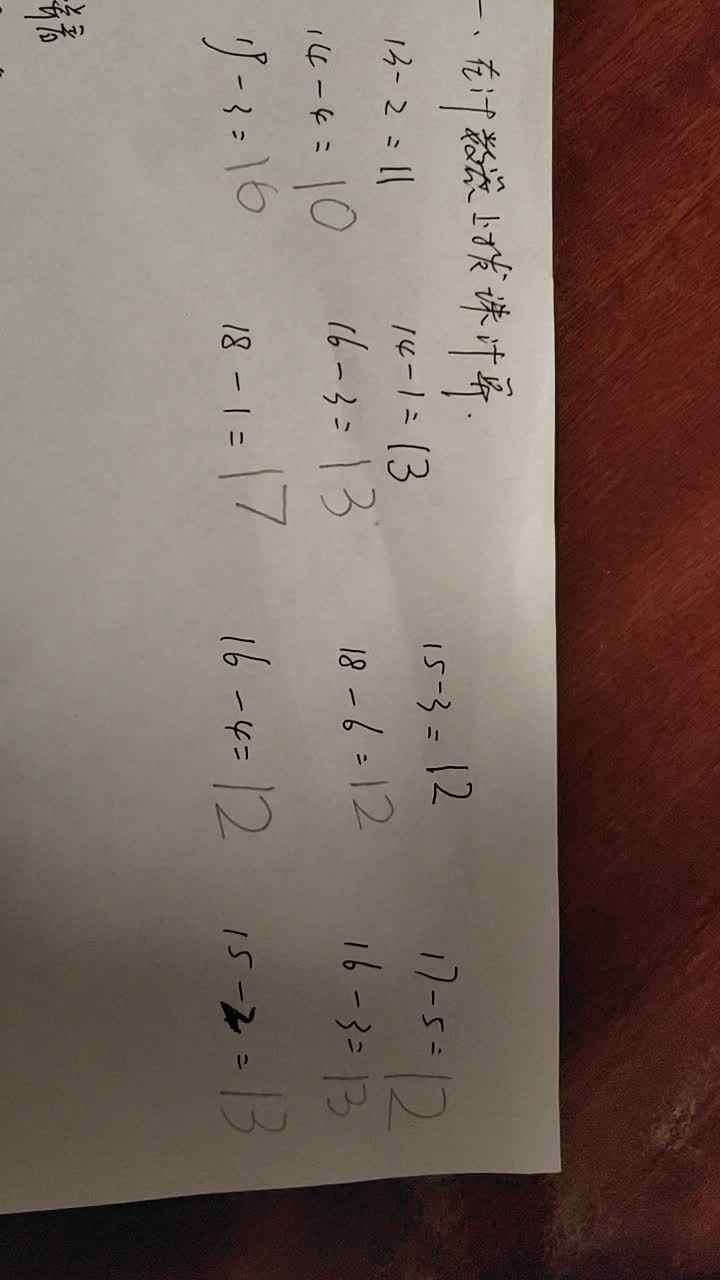 一、在计数器上拨珠计算.
13-2=11 14-1=13 15-3=12 17-5=12
14-4=10 16-3=13 18-6=12 16-3=13
19-3=16 18-1=17 16-4=12 15-2=13